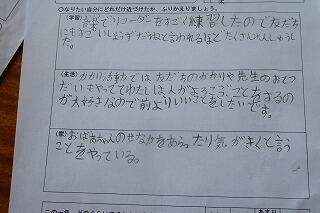 ○なりたい自分にどれだけ近づけたか、ふりかえりましょう。
(学習) 家でリコーダーをすごく練習したので友だち
にもすごいじょうずだねと言われるほどたくさんれんしゅうし
た。
(生活) かかり活動では友だちのかかりや先生のおてつ
だいもやっててわたしは人がよろこぶことをするの
が大好きなので前よりいいことをしたいです。
(家) おばあちゃんのせなかをあらったり気がきくと言う
ことをやっている。
この一年